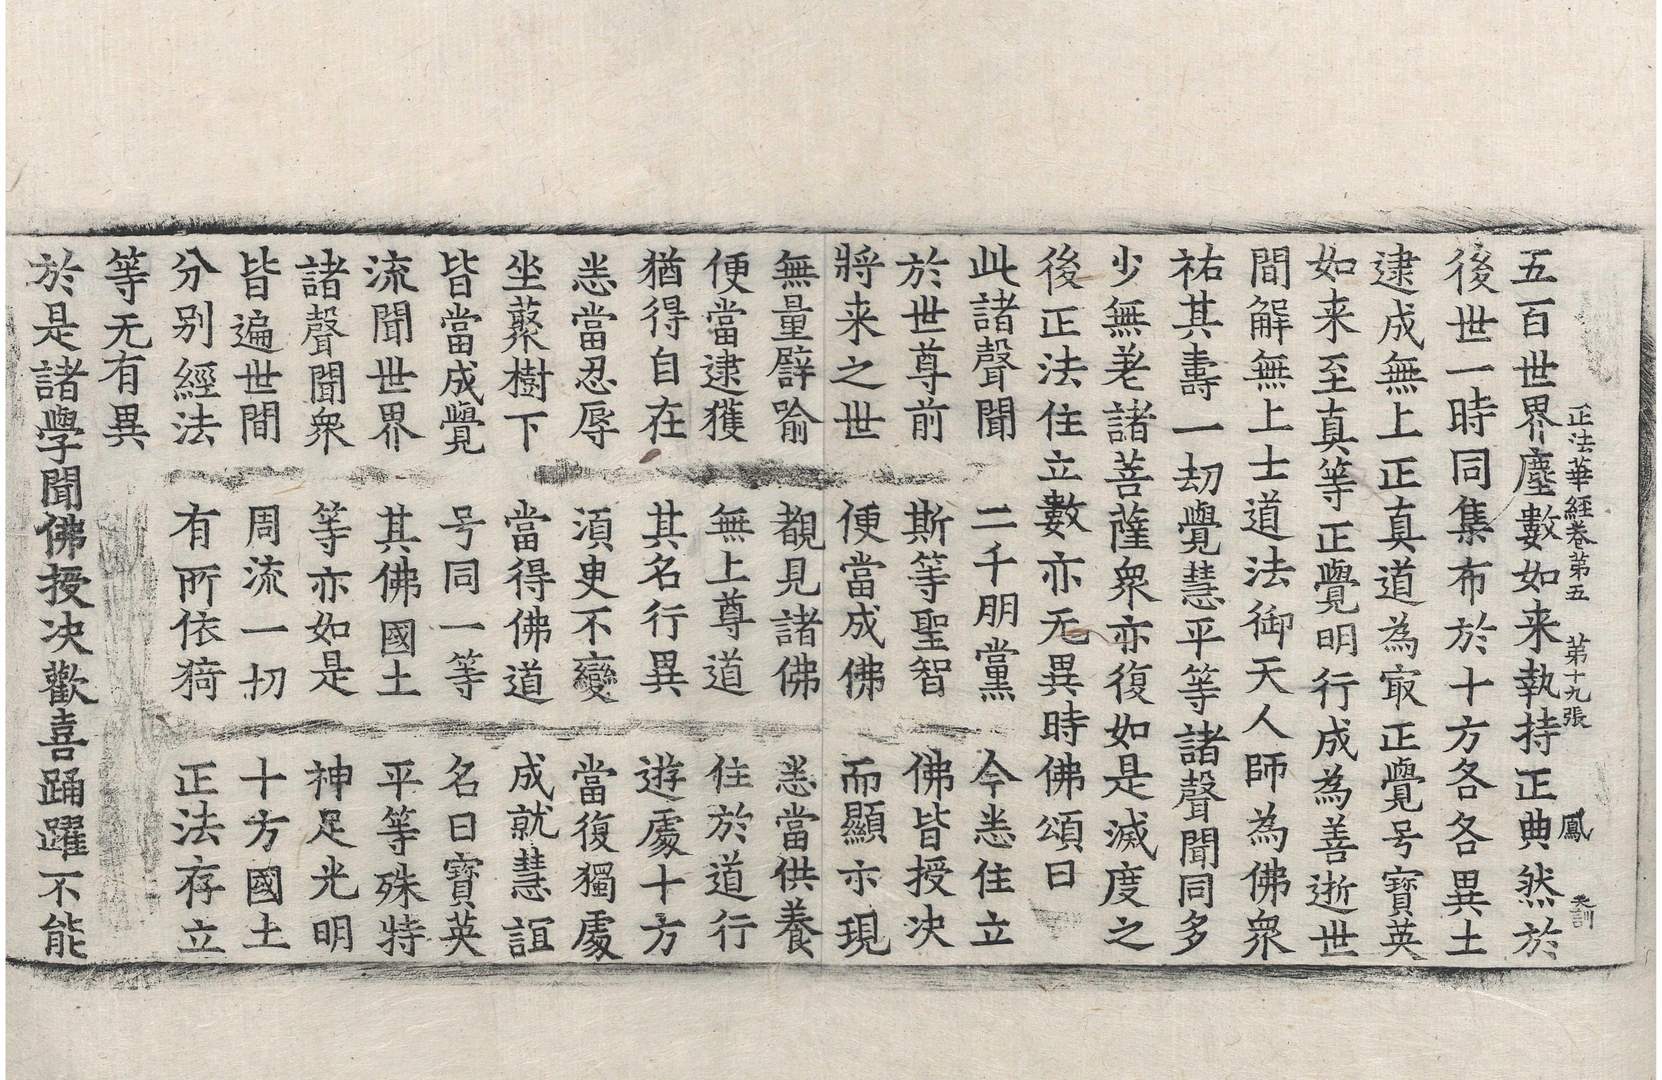 正法華經卷第五 第十九張 鳳
五百世界塵數如来執持正典然於
後世一時同集布於十方各各異土
逮成無上正真道為㝡正覺号寶英
如来至真等正覺明行成為善逝世
間解無上士道法御天人師為佛衆
祐其壽一劫覺慧平等諸聲聞同多
少無差諸菩薩衆亦復如是滅度之
後正法住立數亦无異時佛頌曰
此諸聲聞 二千朋黨 今悉住立
於世尊前 斯等聖智 佛皆授决
將来之世 便當成佛 而顯示現
無量譬喻 覩見諸佛 悉當供養
便當逮獲 無上尊道 住於道行
猶得自在 其名行異 遊處十方
悉當忍辱 湏臾不變 當復獨處
坐藂樹下 當得佛道 成就慧誼
皆當成覺 号同一等 名曰寶英
流聞世界 其佛國土 平等殊特
諸聲聞衆 等亦如是 神足光明
皆遍世間 周流一切 十方國土
分别經法 有所依猗 正法存立
等无有異
於是諸學聞佛授决歡喜踊躍不能